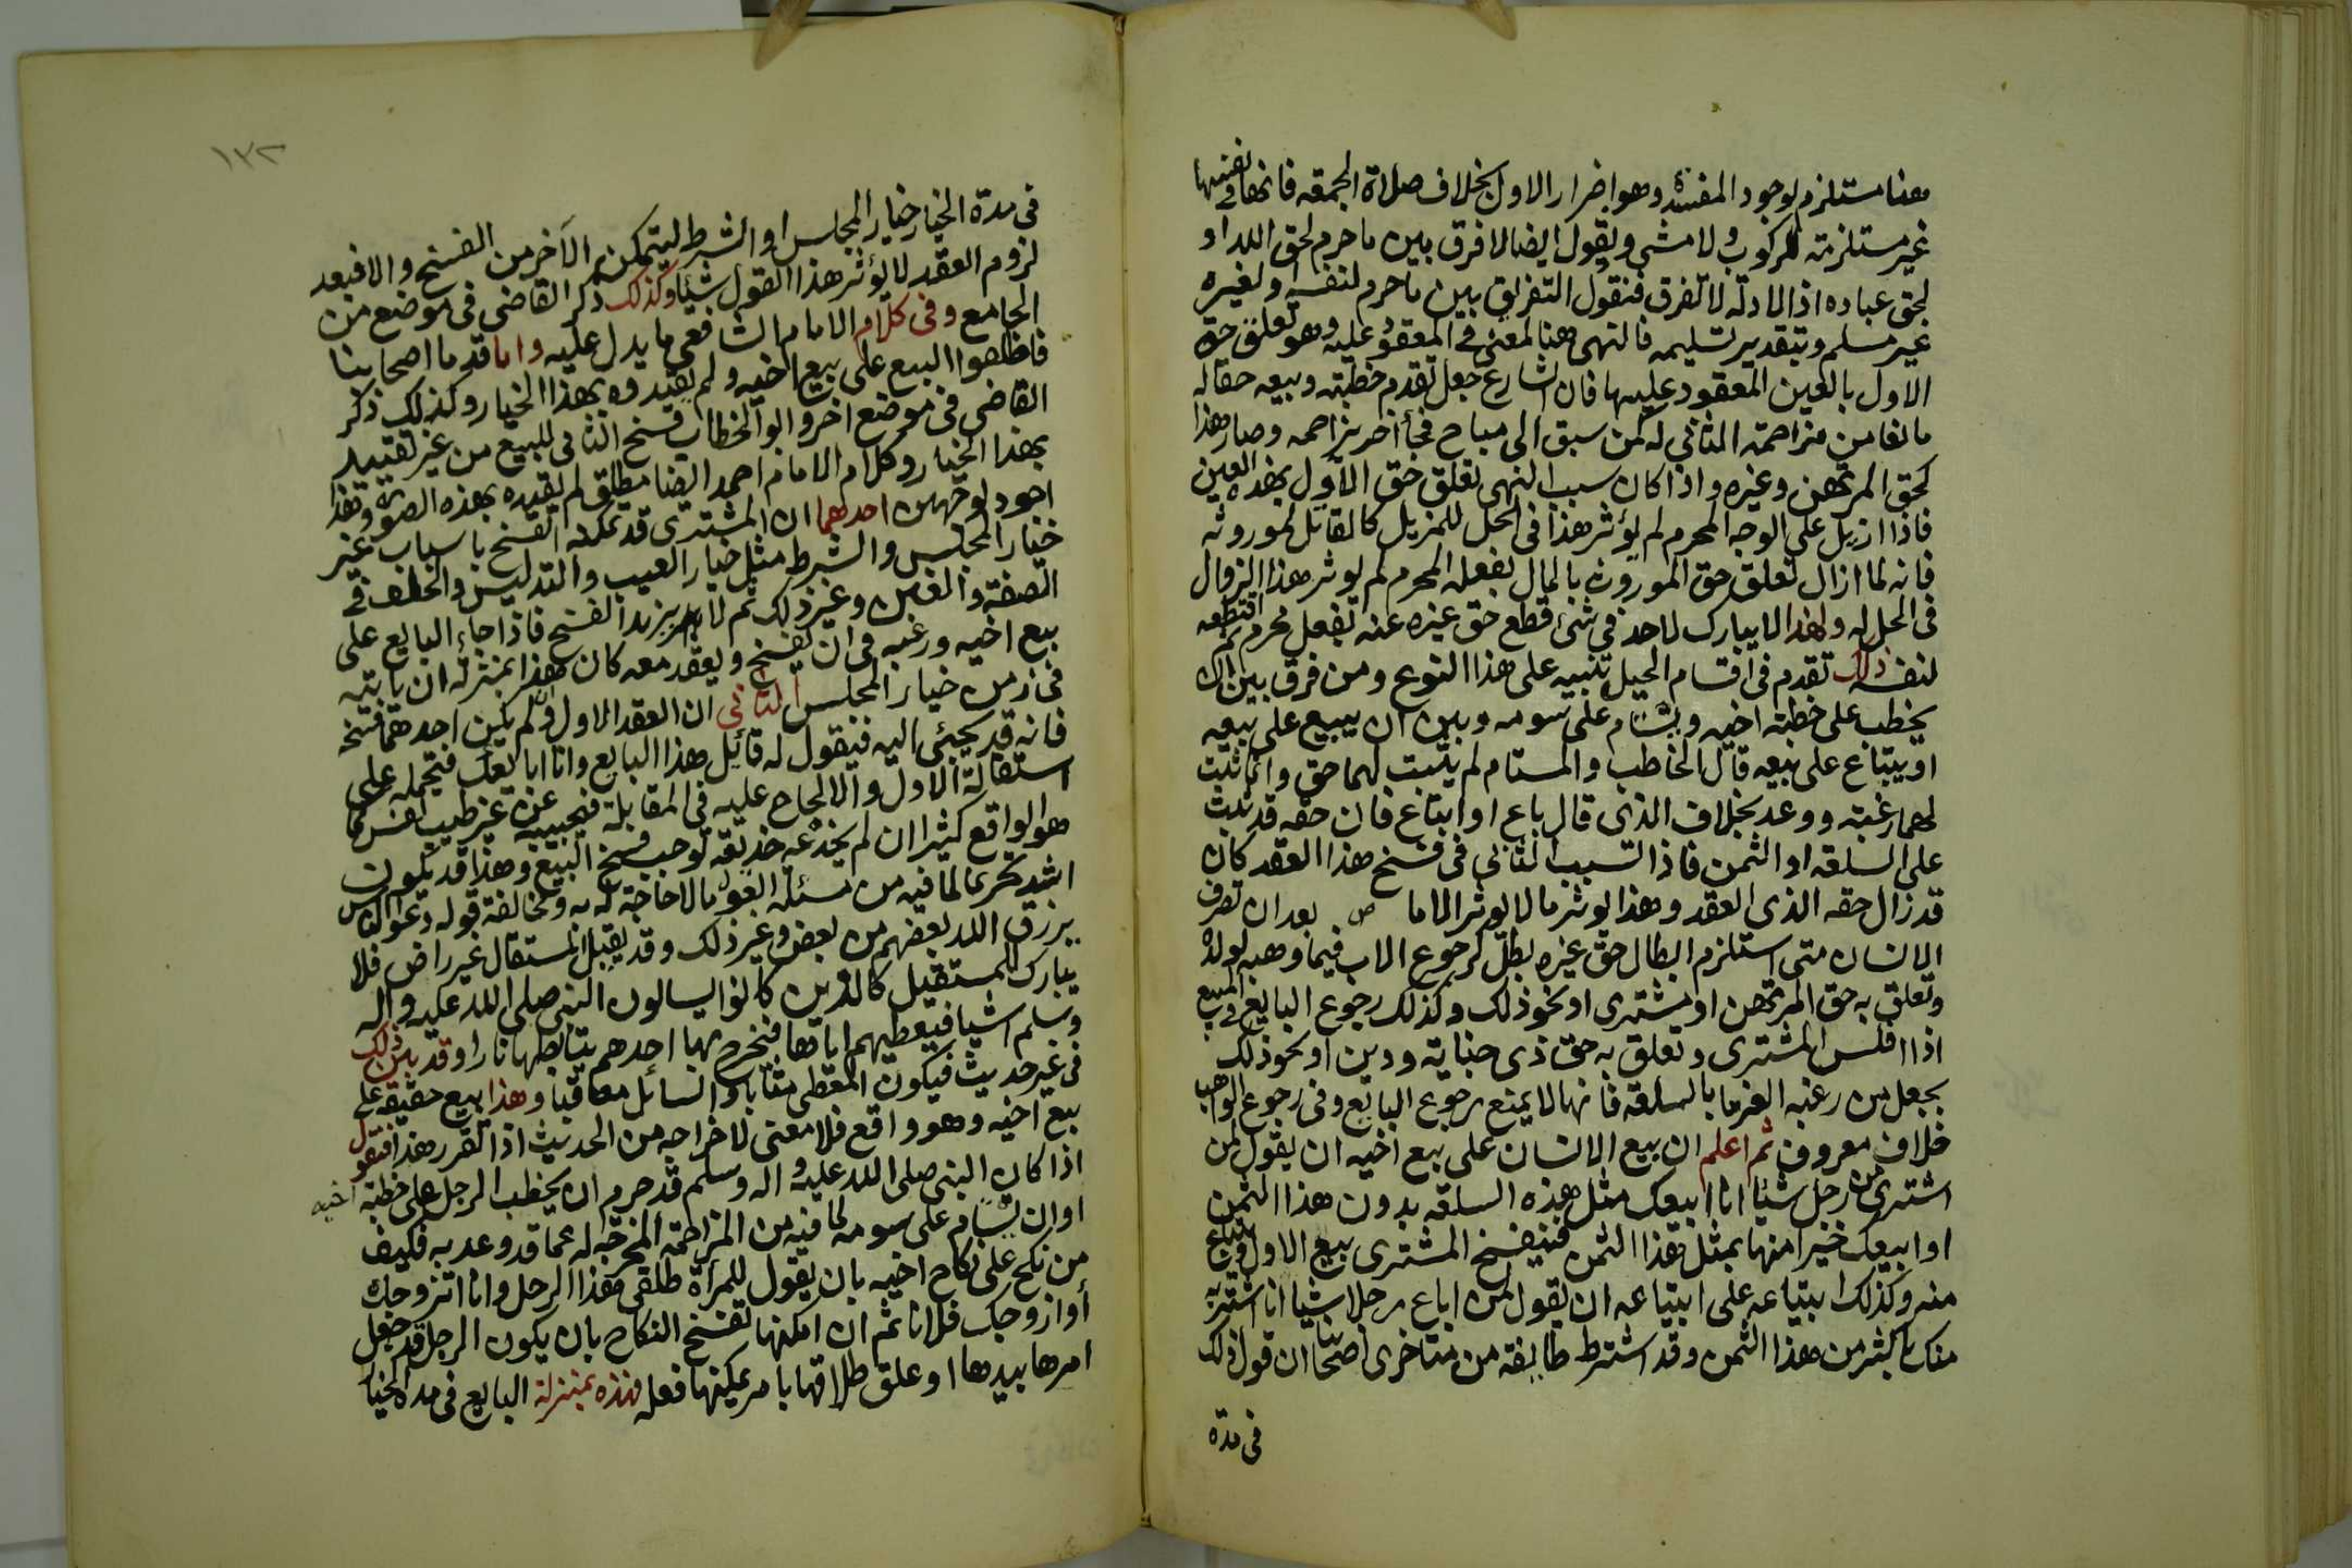 هنا مستلزم لوجود المفسدة وهو اضرار الاول بخلاف صلاة الجمعة فانها في نفسها
غير مستلزمة لركوب ولا مشى ويقول ايضا لا فرق بين ما حرم لحق الله او
لحق عباده اذ الادلة لا تفرق فنقول التفريق بين ما حرم لنفسه او لغيره
غير مسلم وبتقدير تسليمه فالنهى هنا لمعنى في المعقود عليه وهو تعلق حق
الاول بالعين المعقود عليها فان الشارع جعل تقدم خطبته وبيعه حقا له
مانعا من مزاحمة الثانى له كمن سبق الى مباح فجأ اخر يزاحمه وصار هذا
كحق المرتهن وغيره واذا كان سبب النهى تعلق حق الاول بهذه العين
فاذا ازيل على الوجه المحرم لم يؤثر هذا فى الحل للمزيل كالقاتل لموروثه
فانه لما ازال تعلق حق الموروث بالمال بفعله المحرم لم يوثر هذا الزوال
فى الحل له ولهذا لا يبارك لاحد في شئ قطع حق غيره عنه بفعل محرم ثم اقتطعه
لنفسه ذلك تقدم فى اقسام الحيل تنبيه على هذا النوع ومن فرق بين ان
يخطب على خطبة اخيه ويستام على سومه وبين ان يبيع على بيعه
او يبتاع على بيعه قال الخاطب والمستام لم يثبت لهما حق وانما ثبت
لهما رغبة ووعد بخلاف الذى قال باع او ابتاع فان حقه قد ثبت
على السلعة او الثمن فاذا تسبب الثانى فى فسخ هذا العقد كان
قد زال حقه الذى العقد وهذا يوثر ما لا يوثر الاما ص بعد ان تصرف
الانسان متى استلزم ابطال حق غيره بطل كرجوع الاب فيما وهبه لولده
وتعلق به حق المرتهن او مشترى او نحو ذلك وكذلك رجوع البايع في المبيع
اذا افلس المشترى وتعلق به حق ذى جناية ودين او نحو ذلك
بجعل من رغبه الغرما بالسلعة فانها لا يمنع رجوع البائع وفى رجوع الواهب
خلاف معروف ثم اعلم ان بيع الانسان على بيع اخيه ان يقول لمن
اشترى من رجل شيئا انا ابيعك مثل هذه السلعة بدون هذا الثمن
او ابيعك خيرا منها بمثل هذا الثمن فيفسخ المشترى بيع الاول ويبتاع
منه وكذلك ابتياعه على ابتياعه ان يقول لمن اباع رجلا شيا انا اشتريه
منك باكثر من هذا الثمن وقد اشترط طايفة من متاخرى اصحابنا ان قول ذلك
فى مدة
١٣٢
فى مدة الخيار خيار المجلس او الشرط ليتمكن الآخر من الفسخ والا فبعد
لزوم العقد لا يؤثر هذا القول شيئا وكذلك ذكر القاضى فى موضع من
الجامع وفى كلام الامام الشافعى ما يدل عليه واما قدما اصحابنا
فاطلقوا البيع على بيع اخيه ولم يقيدوه بهذا الخيار وكذلك ذكر
القاضى فى موضع اخر وابو الخطاب فسخ الثانى للبيع من غير تقييد
بهذا الخيار وكلام الامام احمد ايضا مطلق لم يقيده بهذه الصورة وهذا
اجود لوجهين احدهما ان المشترى قد يمكنه الفسخ باسباب غير
خيار المجلس والشرط مثل خيار العيب والتدليس والخلف في
الصفة والغبن وغير ذلك ثم لا يريد الفسخ فاذا جاء البايع على
بيع اخيه ورغبه فى ان يفسخ ويعقد معه كان هذا بمنزلة ان ياتيه
فى زمن خيار المجلس الثانى ان العقد الاول ولم يكن احدهما فسخه
فانه قد يجئى اليه فيقول له قائل هذا البايع وانا ابايعك فتحمله على
استقالة الاول والالحاح عليه فى المقابلة فيجيبه عن غير طيب نفس كما
هو الواقع كثيرا ان لم يخدعه خديعة توجب فسخ البيع وهذا قد يكون
اشد تحريما لما فيه من مسئلة الغير ما لا حاجة له به ومخالفة قوله دعوا الناس
يرزق الله بعضهم من بعض وغير ذلك وقد يقيل المستقال غير راض فلا
يبارك للمستقيل كالذين كانوا يسالون النبى صلى الله عليه واله
وسلم اشيا فيعطيهم اياها فيخرج بها احدهم يتابطها نارا وقد بين ذلك
فى غير حديث فيكون المعطى مثابا والسائل معاقبا وهذا بيع حقيقة على
بيع اخيه وهو واقع فلا معنى لاخراجه من الحديث اذا تقرر هذا فنقول
اذا كان النبى صلى الله عليه واله وسلم قد حرم ان يخطب الرجل على خطبة اخيه
او ان يستام على سومه لما فيه من المزاحمة المخرجة له عما قد وعد به فكيف
من نكح على نكاح اخيه بان يقول للمرأة طلقى هذا الرجل وانا اتزوجك
أو ازوجك فلانا ثم ان امكنها تفسخ النكاح بان يكون الرجل قد جعل
امرها بيدها او علق طلاقها بامر يمكنها فعله فهذه بمنزلة البايع فى مدة الخيا